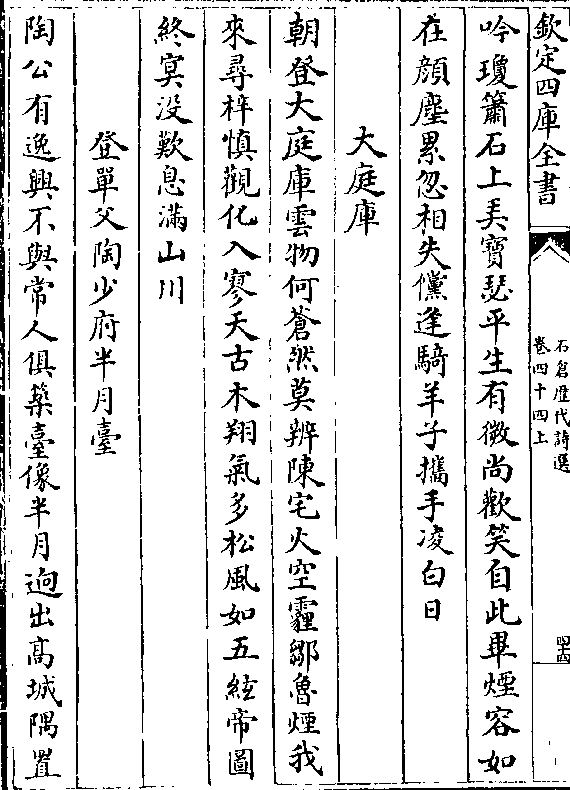 欽定四庫全書
石倉歴代詩選
卷四十四上
四十四
吟瓊簫石上弄寶瑟平生有微尚歡笑自此畢煙容如
在顔塵累忽相失儻逢騎羊子攜手凌白日
大庭庫
朝登大庭庫雲物何蒼然莫辨陳宅火空霾鄒魯煙我
來尋梓慎觀化入寥天古木翔氣多松風如五絃帝圖
終冥没歎息滿山川
登單父陶少府半月臺
陶公有逸興不與常人俱築臺像半月逈出髙城隅置